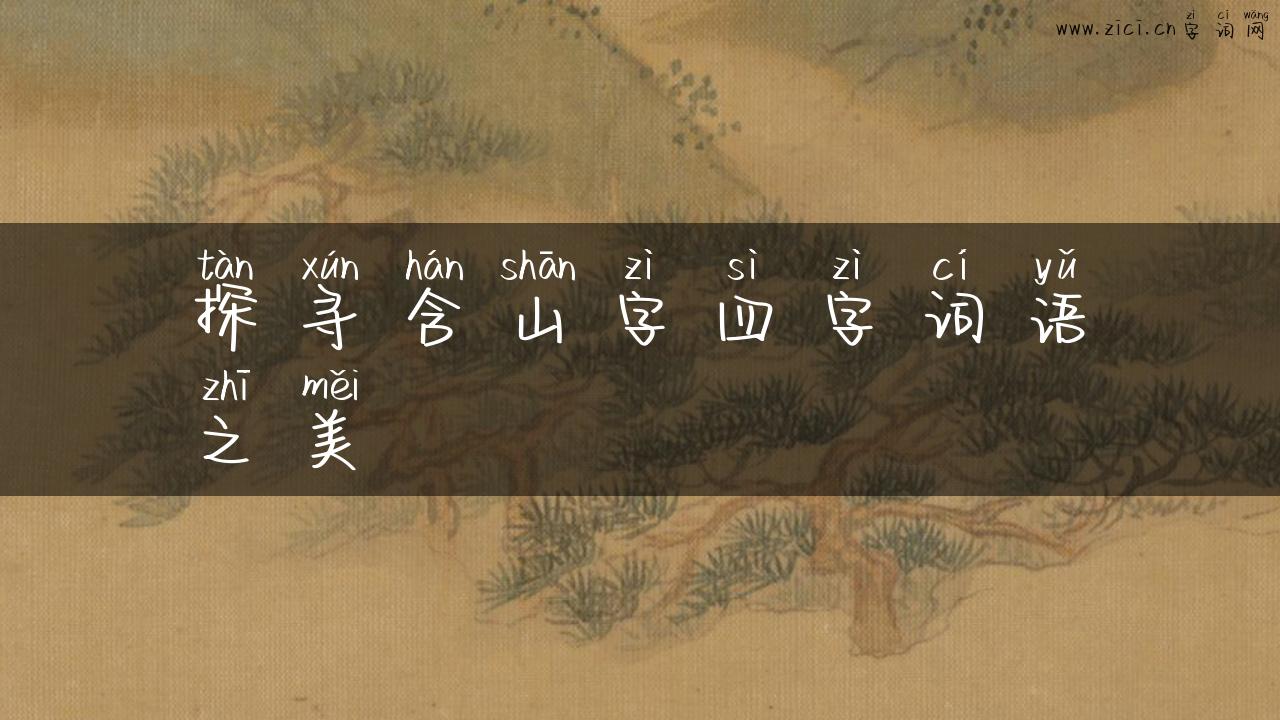 zì cí wǎng
www.zici.cn 字词网
tàn xún hán shān zì sì zì cí yǔ
探寻含山字四字词语
zhī měi
之美